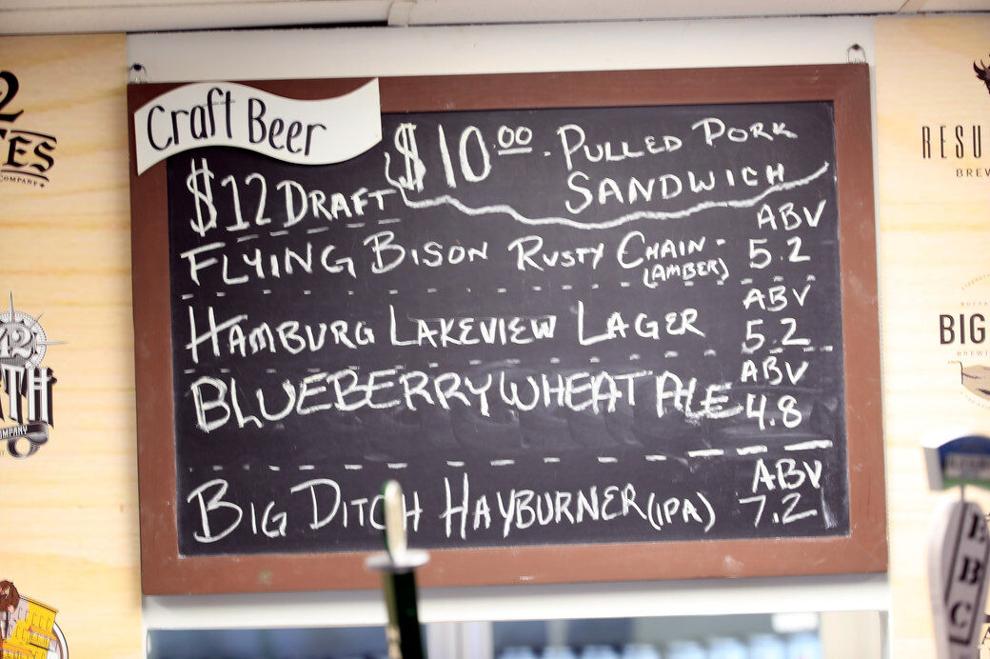 Craft Beer
$10.00 - PULLED PORK
SANDWICH
$12 DRAFT
ABV
FLYING BISON RUSTY CHAIN - 5.2
(AMBER)
ABV
HAMBURG LAKEVIEW LAGER 5.2
ABV
BLUEBERRY WHEAT ALE 4.8
ABV
BIG DITCH HAYBURNER (IPA) 7.2
RESU
BREW
BIG
BREWI
COMPANY
42
TH
OMPANY
BBC